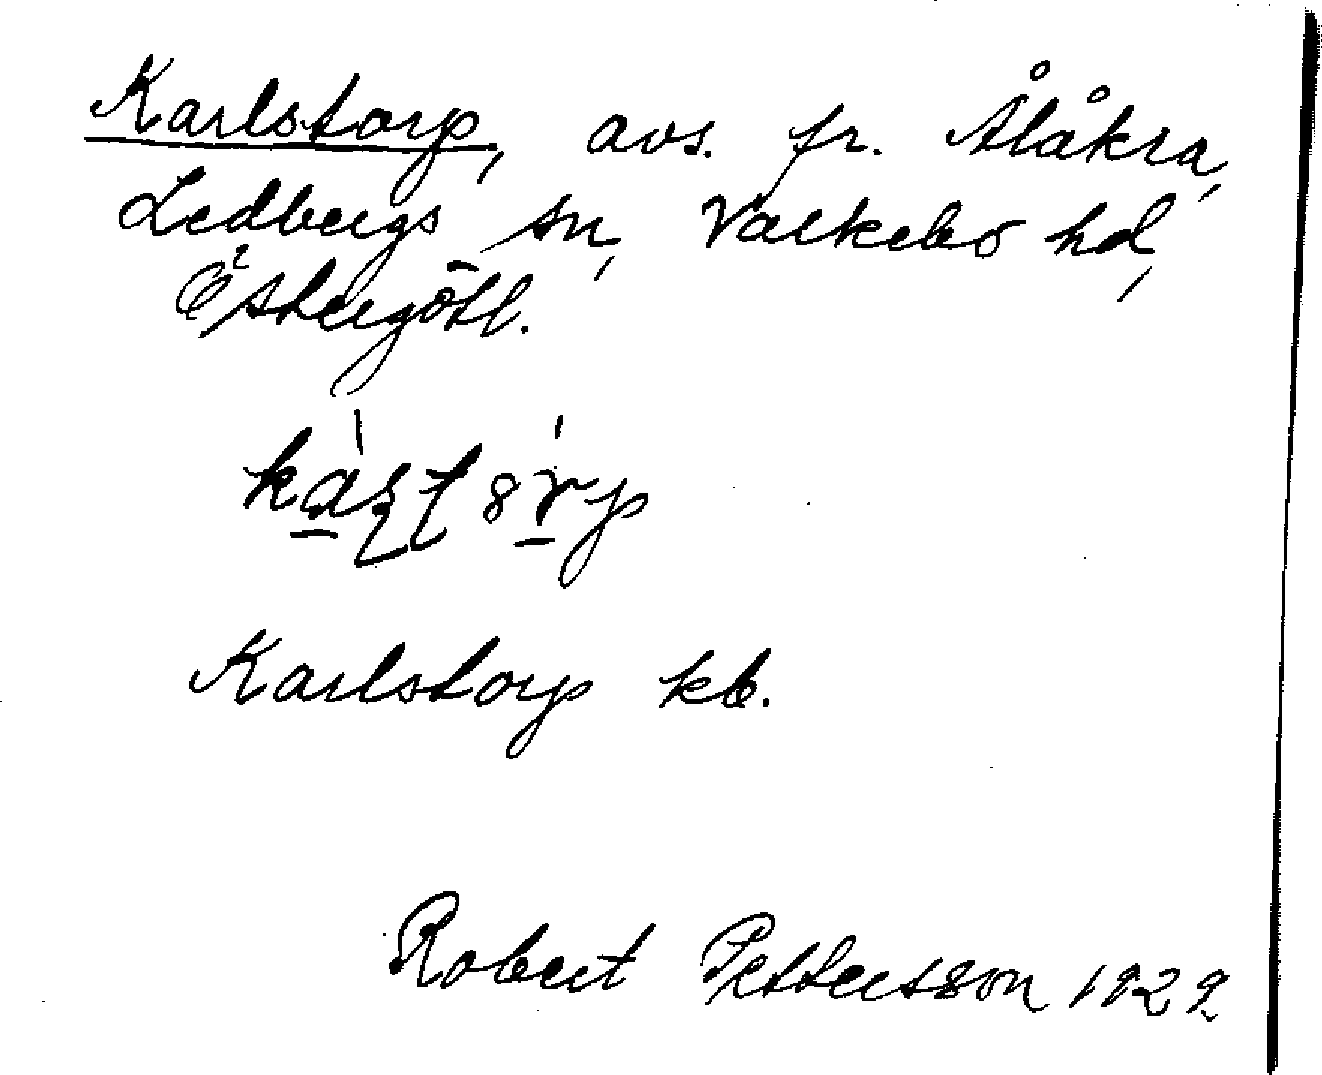 Karlstorp, avs. fr. Ålåkra,
Ledbergs sn, Valkebo hd,
Östergötl.
Karlstorp kb.
Robert Pettersson 1929